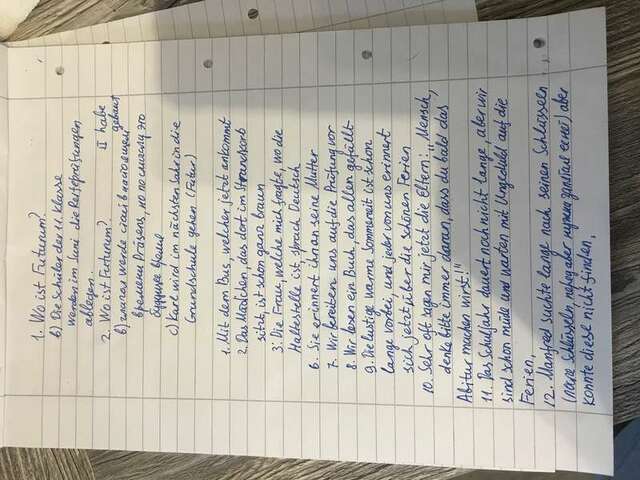 1. Wo ist Futurum?
b) Die Schüler der 11 Klasse
werden im Juni die Reifeprüfungen
ablegen.
2. Wo ist Futurum? II habe
gebaut
b) глагол werde стоит в настоящем
времени Präsens, но по смыслу это
будущее
c) Karl wird im nächsten Jahr in die
Grundschule gehen (Futur)
1. Mit dem Bus, welcher jetzt ankommt
2. Das Mädchen, das dort im Strandkorb
sitzt, ist schon ganz braun
3. Die Frau, welche mich fragte, wo die
Haltestelle ist, sprach Deutsch
6. Sie erinnert ihn an seine Mutter
7. Wir bereiten uns auf die Prüfung vor
8. Wir lesen ein Buch, das allen gefällt
9. Die lustige warme Sommerzeit ist schon
lange vorbei, und jeder von uns erinnert
sich jetzt über die schönen Ferien
10. Sehr oft sagen mir jetzt die Eltern: "Mensch,
denke bitte immer daran, dass du bald das
Abitur machen wirst!"
11. Das Schuljahr dauert noch nicht lange, aber wir
sind schon müde und warten mit Ungeduld auf die
Ferien.
12. Manfred suchte lange nach seinen Schlüsseln
(nach Schlüsseln нужен) aber
konnte diese nicht finden.